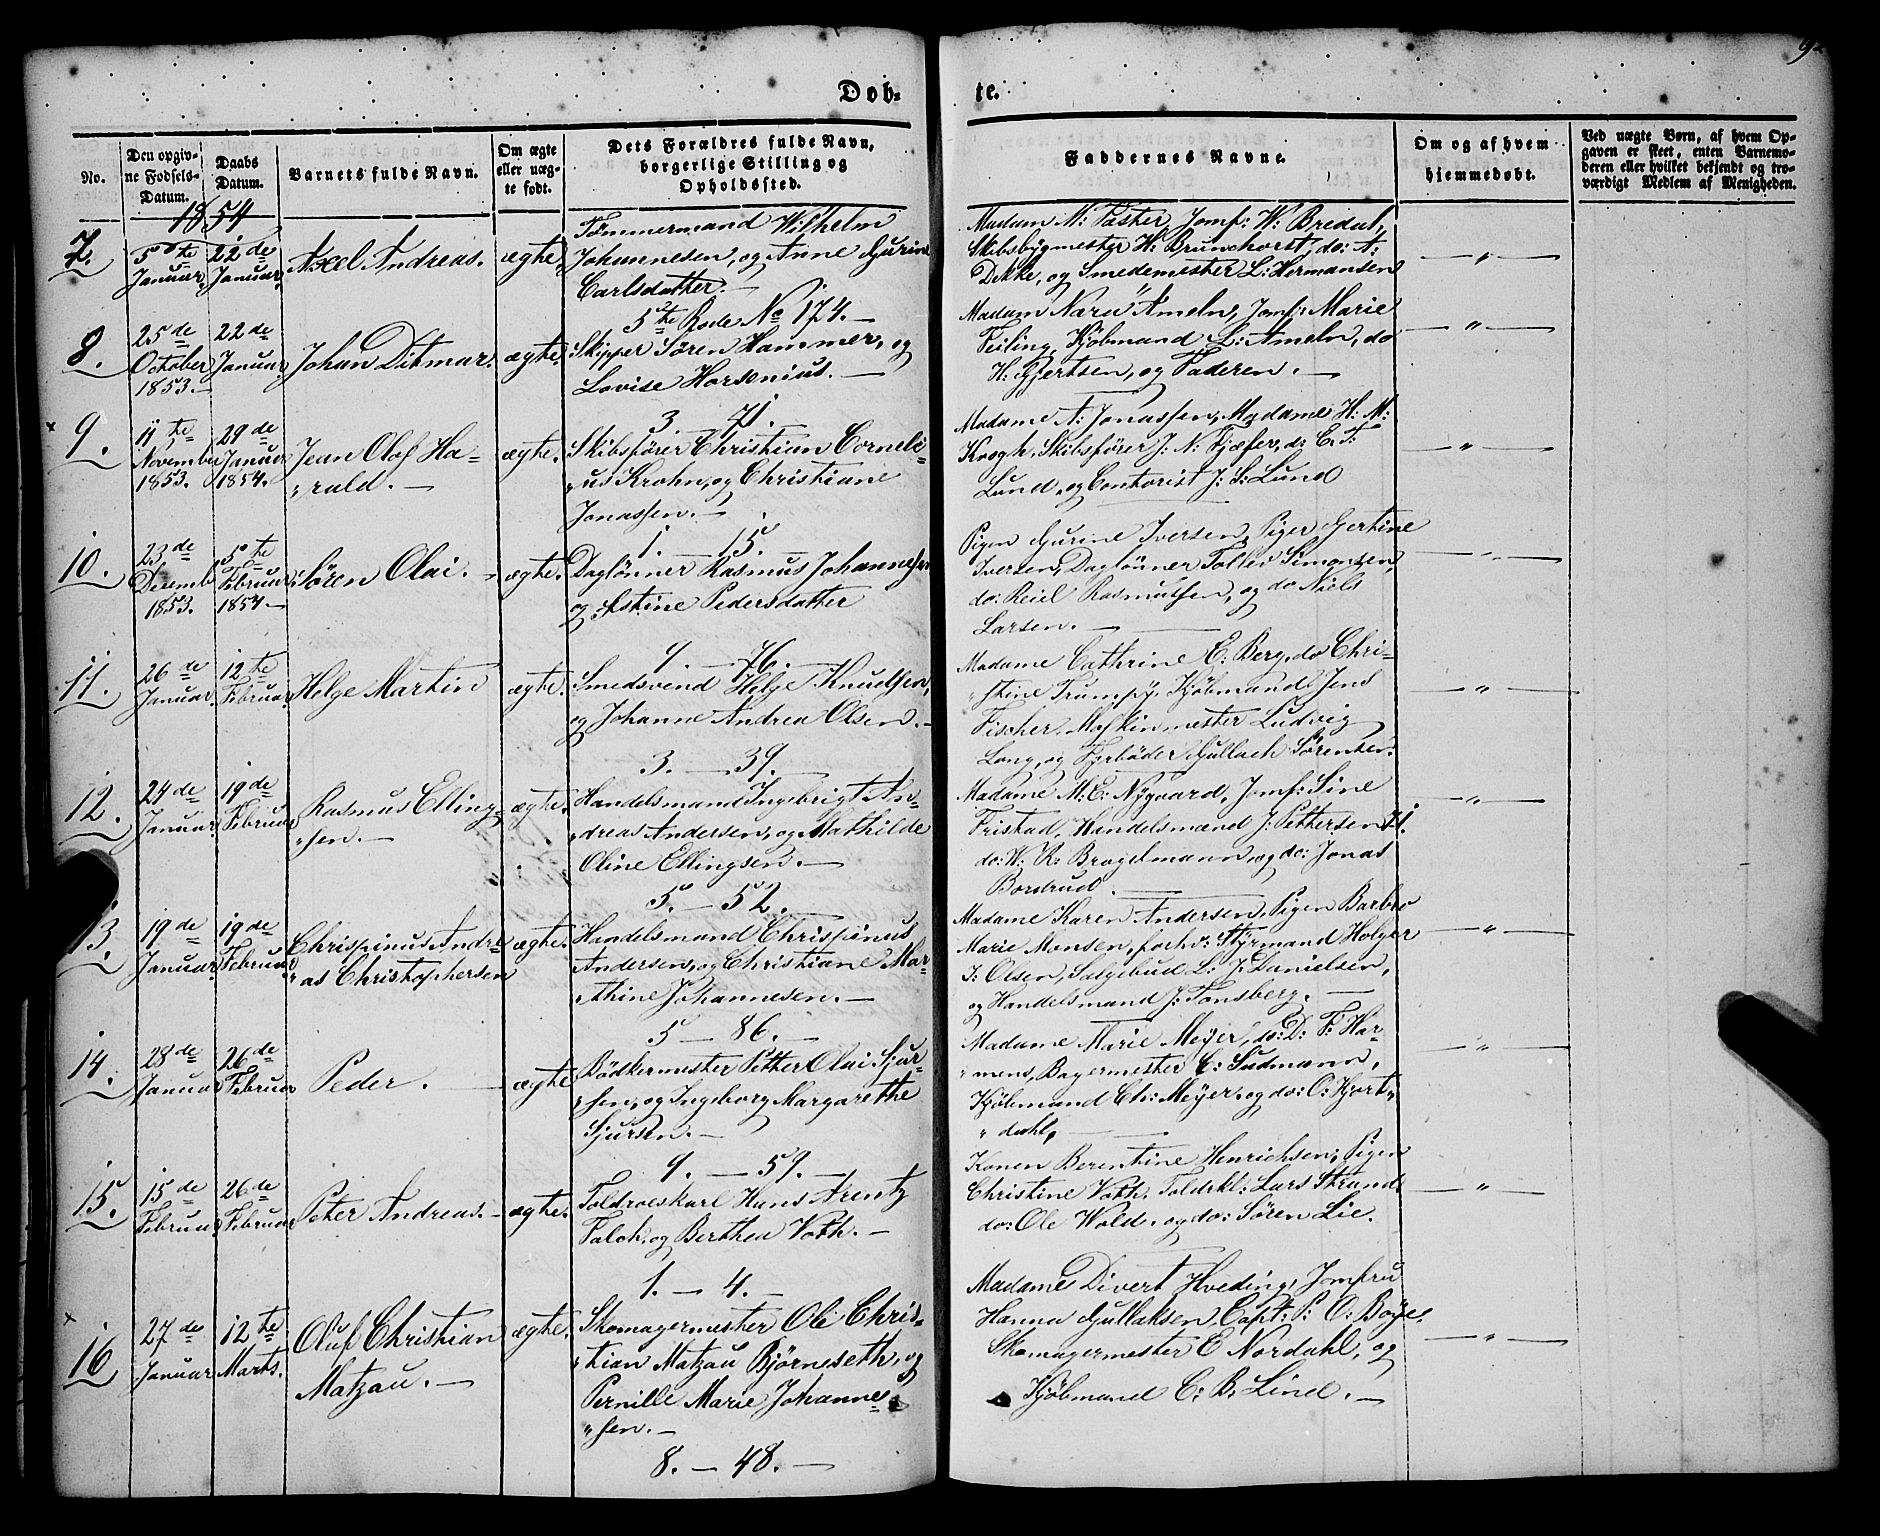 92
Døb-
te.
No.
Den opgiv-
ne Fødsels-
Datum.
Daabs
Datum.
Barnets fulde Navn.
Om ægte
eller uæg-
te født.
Dets Forældres fulde Navn,
borgerlige Stilling og
Opholdssted.
Faddernes Navne.
Om og af hvem
hjemmedøbt.
Ved uægte Børn, af hvem Op-
gaven er skeet, enten Barnemo-
deren eller hvilket bekjendt og tro-
værdigt Medlem af Menigheden.
1854
7.
5te
Januar.
22de
Januar.
Axel Andreas.
ægte.
Tømmermand Wilhelm
Johannesen, og Anne Gurine
Carlsdatter. —
5te Rode No 174. —
Madam N: Paster, Jomf: W: Bredal,
Skibsbygmester H: Brunchorst, do: A:
Dekke, og Smedemester L: Hermansen
— " —
8.
25de
October
1853. —
22de
Januar.
Johan Ditmar.
ægte.
Skipper Søren Hammer, og
Lovise Horsenius. —
3. — 71. —
Madam Nara Ameln, Jomf: Marie
Feiling, Kjøbmand L: Ameln, do
H: Gjertsen, og Faderen. —
— " —
x
9.
11te
Novembr
1853.
29de
Januar
1854.
Jean Olaf Ha-
"rald. —
ægte.
Skibsfører Christian Corneli-
"us Krohn, og Christiane
Jonassen. —
1. — 15. —
Madame A: Jonassen, Madame H: M:
Krogh, Skibsfører J: N: Fjæser, d: C: F:
Lund, og Contorist J: S: Lund
— " —
10.
23de
Desemb
1853.
5te
Februar
1854. —
Søren Olai. —
ægte.
Dagløner Rasmus Johannesen
og Istine Pedersdatter
9. — 76. —
Pigen Gurine Iversen, Piger Gertine
Iversen, Dagløner Tollev Simonsen,
do: Reiel Rasmussen, og do Niels
Larsen. —
— " —
11.
26de
Januar.
12te
Februar.
Helge Martin
ægte.
Smedsvend Helge Knudsen,
og Johanne Andrea Olsen. —
3. — 39. —
Madame Cathrine E: Berg, do Chri-
"stine Trumpy, Kjøbmand Jens
Fischer, Maskinmester Ludvig
Long, og Fyrbøder Gullach Sørensen.
— " —
12.
24de
Januar.
19de
Februar
Rasmus Elling-
"sen. —
ægte.
Handelsmand Ingebrigt An-
"dreas Andersen, og Mathilde
Oline Ellingsen. —
5. — 52. —
Madame M: E: Nygaard, Jomf: Sine
Fristad, Handelsmænd J: Pettersen,
do: W: R: Brogelmann, og do: Jonas
Bordrud. —
— " —
13.
19de
Januar.
19de
Februar
Chrispinus Andre-
"as Christophersen
ægte.
Handelsmand Chrispinus
Andersen, og Christiane Mar-
Thine Johannesen. —
5 — 86. —
Madame Karen Andersen, Pigen Barbro
Marie Monsen, forhv: Styrmand Holger
I: Olsen, Salgebud L: J: Danielsen,
og Handelsmand J: Tonsberg. —
— " —
14.
28de
Januar
26de
Februar
Peder. —
ægte
Bødkermester Petter Olai Sjur-
"sen, og Ingeborg Margarethe
Sjursen. —
9. — 59. —
Madame Marie Meyer, do: D: F: Har-
"mens, Bagermester C: Sudmann,
Kjøbmand Ch: Meyer, og do: O: Hjort-
"dahl. —
— " —
15.
15de
Februar
26de
Februar
Peter Andreas. —
ægte.
Toldroeskarl Hans Arentz
Falch, og Berthea Voth. —
1. — 4. —
Konen Berentine Henrichsen, Pigen
Christine Voth, Toldrkl: Lars Strand,
do: Ole Wold, og do: Søren Lie.
— " —
x
16
27de
Januar
12te
Marts.
Oluf Christian
Matzau. —
ægte.
Skomagermester Ole Chris-
"tian Matzau Bjørneseth, og
Pernille Marie Johanne-
"sen. —
8. — 48. —
Madame Divert Hveding, Jomfru
Hanna Gullaksen, Capt: P: O: Boye,
Skomagermester E Nordahl, og
Kjøbmand C: B: Lind. —
— " —